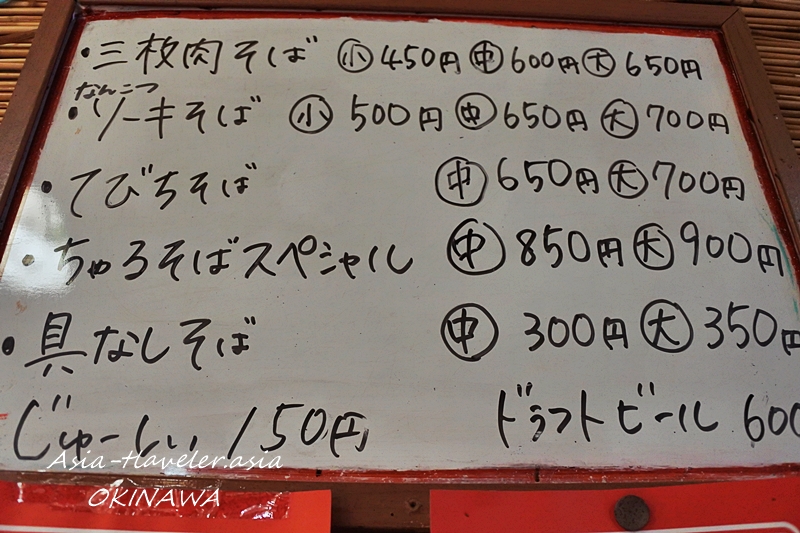 ・三枚肉そば ㊙小 450円 ㊥ 600円 大 650円
なんこつ
・ソーキそば 小 500円 ㊥ 650円 大 700円
・てびちそば ㊥ 650円 大 700円
・ちゅるそばスペシャル ㊥ 850円 大 900円
・具なしそば ㊥ 300円 大 350円
じゅーしぃ 150円 ドラフトビール 600
Asia-traveler.asia
OKINAWA